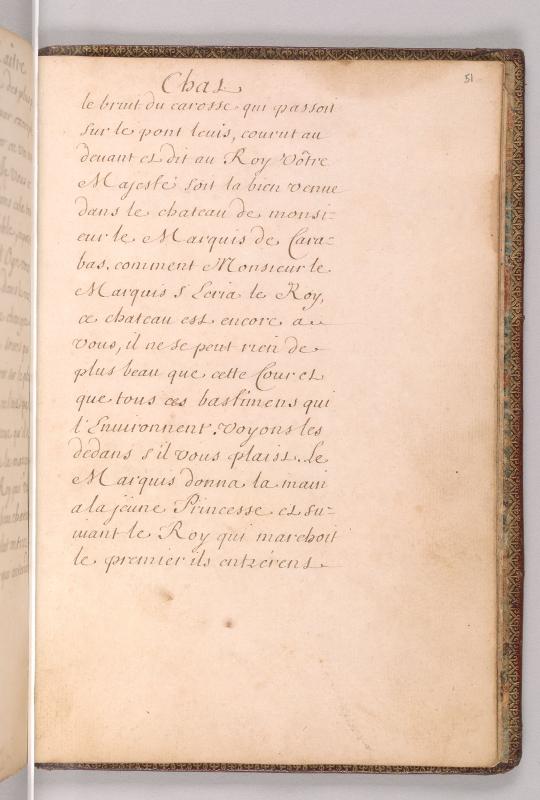 51
Chat
le bruit du carosse qui passoit
sur le pont levis, courut au
devant et dit au Roy Vôtre
Majesté soit la bien venue
dans le chateau de monsi=
eur le Marquis de Cara=
bas. comment Monsieur le
Marquis s'Ecria le Roy,
ce chateau est encore a
vous, il ne se peut rien de
plus beau que cette Cour et
que tous ces bastimens qui
l'Environnent. voyons les
dedans s'il vous plaist. le
Marquis donna la main
a la jeüne Princesse et su=
ivant le Roy qui marchoit
le premier ils entrérent